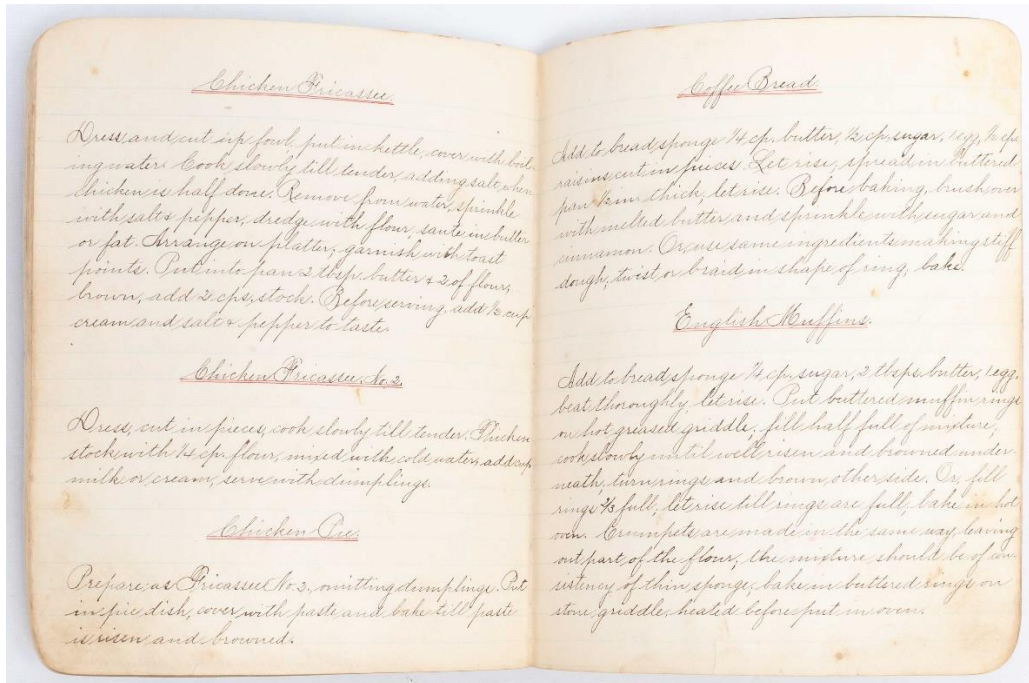 Chicken Fricassee.
Dress and cut up fowl, put in kettle, cover with boil-
ing water. Cook slowly till tender, adding salt when
chicken is half done. Remove from water, sprinkle
with salt & pepper, dredge with flour, saute in butter
or fat. Arrange on platter, garnish with toast
points. Put into pan 2 tbsp. butter & 2 of flour,
brown, add 2 cps. stock. Before serving, add 1/2 cup
cream and salt & pepper to taste.
Chicken Fricassee No. 2.
Dress, cut in pieces, cook slowly till tender. Thicken
stock with 1/4 cp. flour, mixed with cold water, add cup
milk or cream, serve with dumplings.
Chicken Pie.
Prepare as Fricassee No. 2, omitting dumplings. Put
in pie dish, cover with paste and bake till paste
is risen and browned.
Coffee Bread.
Add to bread sponge 1/4 cp. butter, 1/2 cp. sugar, 1 egg, 1/2 cp.
raisins cut in pieces. Let rise, spread in buttered
pan 1/2 in. thick, let rise. Before baking, brush over
with melted butter and sprinkle with sugar and
cinnamon. Or, use same ingredients making stiff
dough, twist or braid in shape of ring, bake.
English Muffins.
Add to bread sponge 1/4 cp. sugar, 2 tbsps. butter, 1 egg,
beat thoroughly, let rise. Put buttered muffin rings
on hot greased griddle, fill half full of mixture,
cook slowly until well risen and browned under-
neath, turn rings and brown other side. Or, fill
rings 2/3 full, let rise till rings are full, bake in hot
oven. Crumpets are made in the same way, leaving
out part of the flour, the mixture should be of con-
sistency of thin sponge, bake in buttered rings on
stone griddle, heated before put in oven.